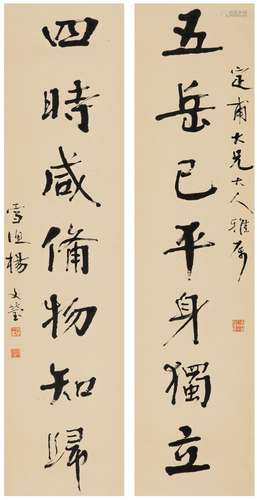 五岳已平身獨立
定甫大兄大人雅屬
四時咸備物知歸
雪漁楊文瑩